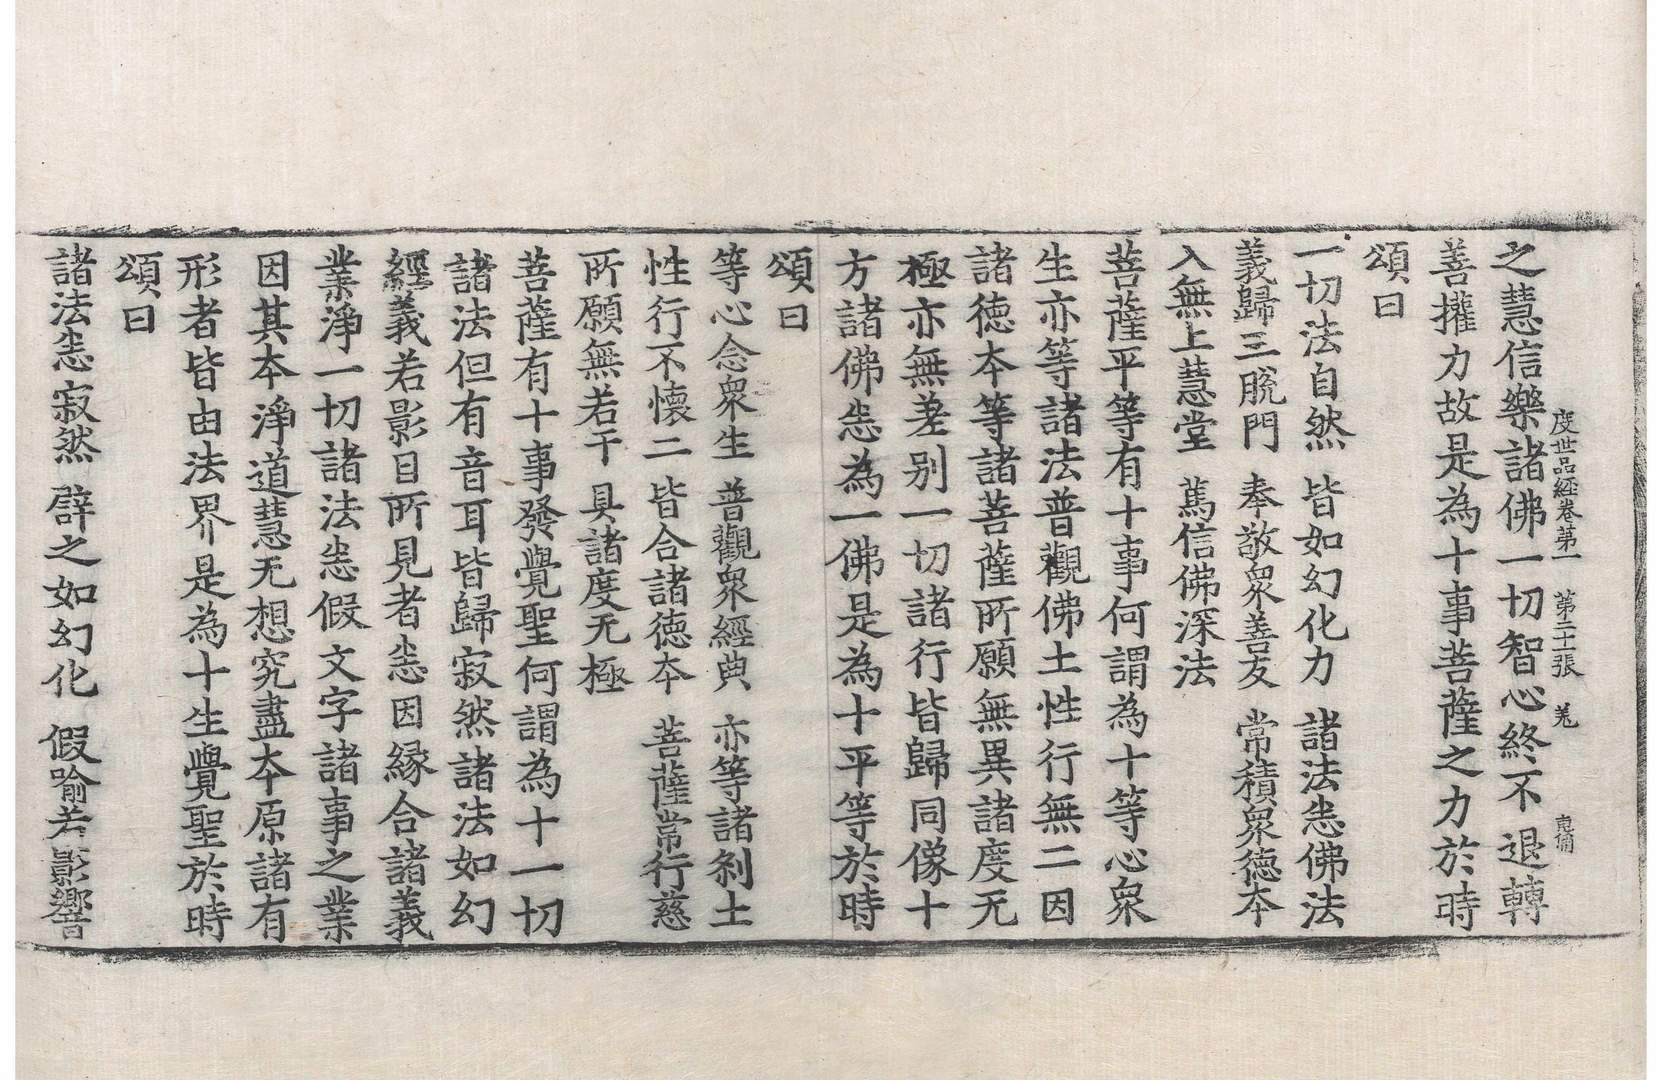 度世品經卷第一　第二十張　羌
之慧信樂諸佛一切智心終不退轉
善攉力故是為十事菩薩之力於時
頌曰
一切法自然　皆如幻化力　諸法恙佛法
義歸三脫門　奉敬衆善友　常積衆德本
入無上慧堂　篤信佛深法
菩薩平等有十事何謂為十等心衆
生亦等諸法普觀佛土性行無二因
諸徳本等諸菩薩所願無異諸度无
極亦無差别一切諸行皆歸同像十
方諸佛恙為一佛是為十平等於時
頌曰
等心念衆生　普觀衆經典　亦等諸刹土
性行不懷二　皆合諸徳本　菩薩常行慈
所願無若干　具諸度无極
菩薩有十事發覺聖何謂為十一切
諸法但有音耳皆歸寂然諸法如幻
經義若影目所見者恙因緣合諸義
業淨一切諸法恙假文字諸事之業
因其本淨道慧无想究盡本原諸有
形者皆由法界是為十生覺聖於時
頌曰
諸法恙寂然　辟之如幻化　假喻若影響